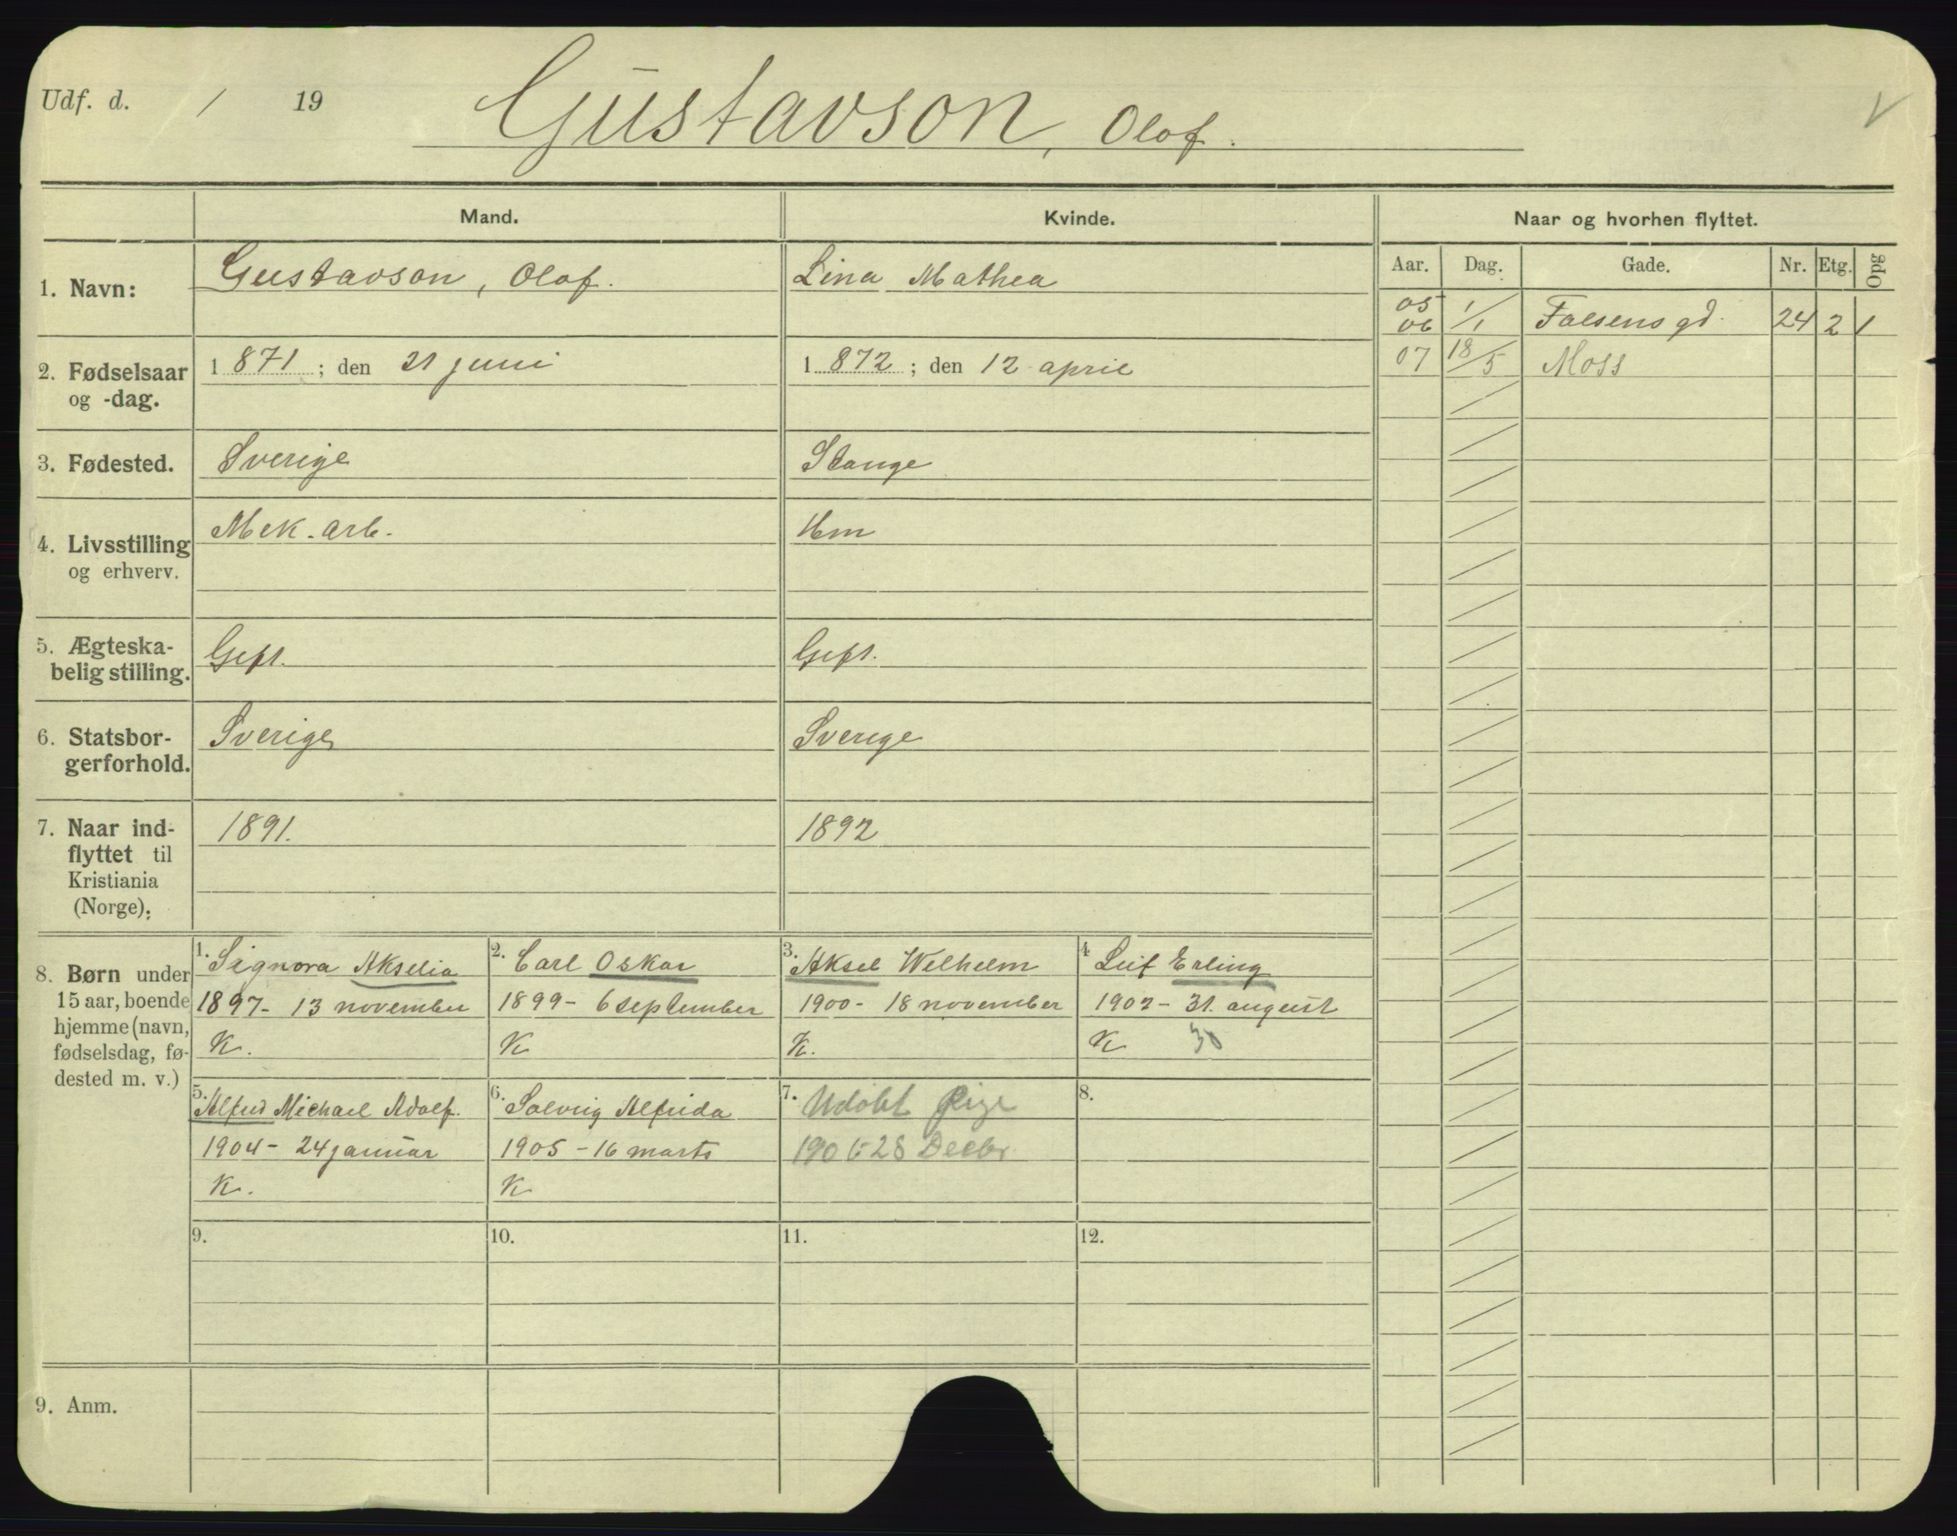 Udf. d. / 19 Gustavson, Olof.
Mand. Kvinde. Naar og hvorhen flyttet.
Aar. Dag. Gade. Nr. Etg. Opg
1. Navn: Gustavson, Olof. Lina Mathea
05 1/
06 /1 Falsens gd. 24 2 1
07 18/5 Moss
2. Fødselsaar
og -dag.
1871; den 21 juni
1872; den 12 april
3. Fødested. Sverige Stange
4. Livsstilling
og erhverv.
Mek. arb. Hm
5. Ægteska-
belig stilling.
Gift. Gift.
6. Statsbor-
gerforhold.
Sverige Sverige
7. Naar ind-
flyttet til
Kristiania
(Norge).
1891. 1892
8. Børn under
15 aar, boende
hjemme (navn,
fødselsdag, fø-
dested m. v.)
1. Signora Akselia
1897- 13 november
K.
2. Carl Oskar
1899- 6 september
K
3. Aksel Welhelm
1900- 18 november
K.
4 Leif Erling
1902- 31. august
K 30
5. Alfred Michael Adolf.
1904- 24 januar
K.
6. Solveig Alfrida
1905 -16 marts
K
7. Udøbt Pige
1906-28 Decbr
8.
9.
10.
11.
12.
9. Anm.